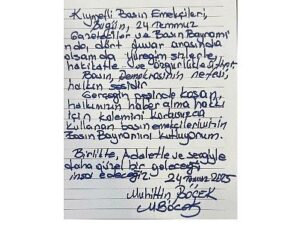 Kıymetli Basın Emekçileri,
Bugün, 24 Temmuz
Gazeteciler ve Basın Bayramı
nda, dört duvar arasında
olsam da yüreğim sizlerle,
hakikatle ve özgürlükledir.
Basın, Demokrasinin nefesi,
halkın sesidir
Gerçeğin peşinde koşan,
halkımızın haber alma hakkı
için kalemini korkusuzca
kullanan basın emekçilerimizin
Basın Bayramını kutluyorum.
Birlikte, Adaletle ve sevgiyle
daha güzel bir geleceği
inşa edeceğiz
24 Temmuz 2025
Muhittin BÖCEK
MBöcek